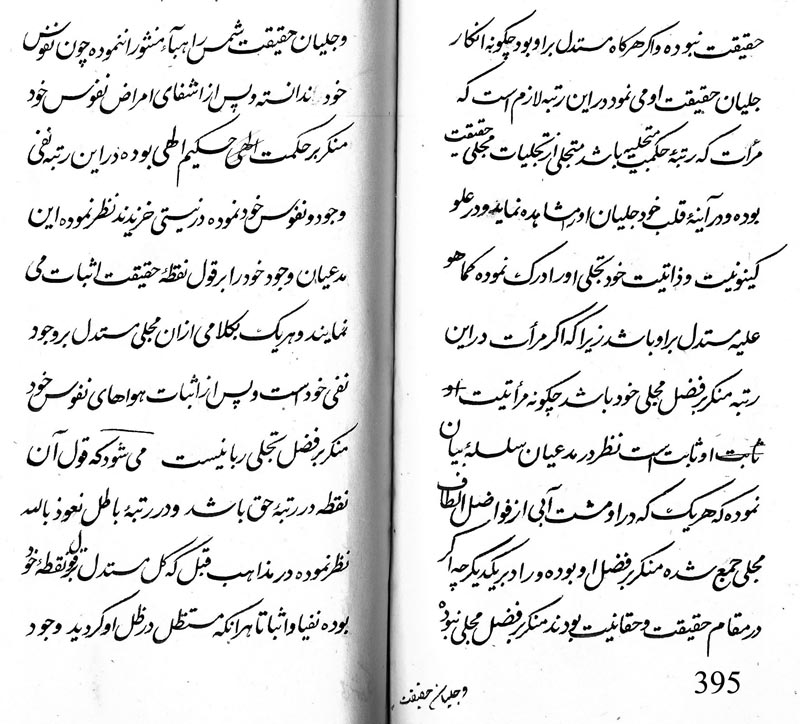 حقیقت نبوده و اگر هرگاه مستدل بر او بود چگونه انکار
جلیان حقیقت او می نمود در این رتبه لازم است که
مرآت که رتبهٔ حکمیت متجلیه باشد متجلی از تجلیات مجلی حقیقت
بوده و در آینهٔ قلب خود جلیان او را مشاهده نماید و در علو
کینونیت و ذاتیت خود تجلی او را درک نموده کماهو
علیه مستدل بر او باشد زیرا که اگر مرآت در این
رتبه منکر بر فضل مجلی خود باشد چگونه مرآتیت او
ثابت او ثابت است نظر در مدعیان سلسلهٔ بیان
نموده که هر یک که در او مشت آبی از فواضل الطاف
مجلی جمع شده منکر بر فضل او بوده و راد بر یکدیگر چه اگر
در مقام حقیقت و حقانیت بودند منکر بر فضل مجلی نبوده
و جلیان حقیقت
395
و جلیان حقیقت شمس را هبآء منثورا ننموده چون نفوس
خود ندانسته و پس از اشفای امراض نفوس خود
منکر بر حکمت الهی حکیم الهی بوده در این رتبه نفی
وجود و نفوس خود نموده در نیستی خزیدند نظر نموده این
مدعیان وجود خود را بر قول نقطهٔ حقیقت اثبات می
نمایند و هر یک بکلامی از ان مجلی مستدل بر وجود
نفی خود است و پس از اثبات هواهای نفوس خود
منکر بر فضل تجلی ربانیست می شود که قول آن
نقطه در رتبهٔ حق باشد و در رتبهٔ باطل نعوذ بالله
نظر نموده در مذاهب قبل که کل مستدل بر قول نقطهٔ خود
بوده نفیا و اثباتا هر آنکه مستظل در ظل او گردید وجود